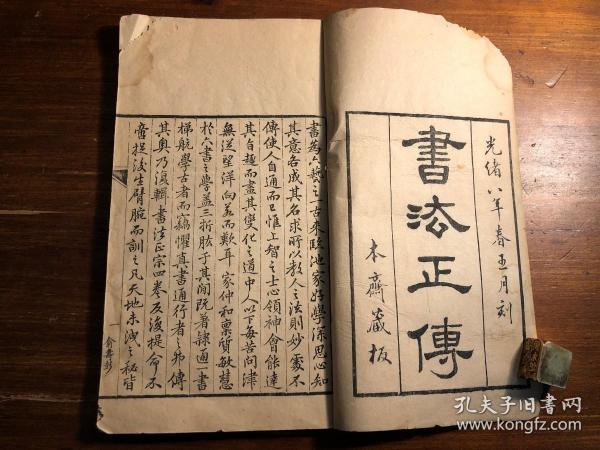 光緒八年春五月刻
書法正傳
本齋藏板
書為六藝之一古來臨池家好學深思心知
其意各成其名求所以教人之法則妙處不
傳使人自通而已惟上智之士心領神會能達
其自趨而盡其變化之道中人以下每苦問津
無從望洋向若而歎耳家仲和稟質敏慧
於六書之學蓋三折肱于其間既著隸通一書
梯航學古者而竊懼真書通行者之弗傳
其奧乃復輯書法正宗四卷反復提命不
啻捉後生臂腕而訓之凡天地未洩之秘皆
一
俞舞彭
孔夫子旧书网
www.kongfz.com